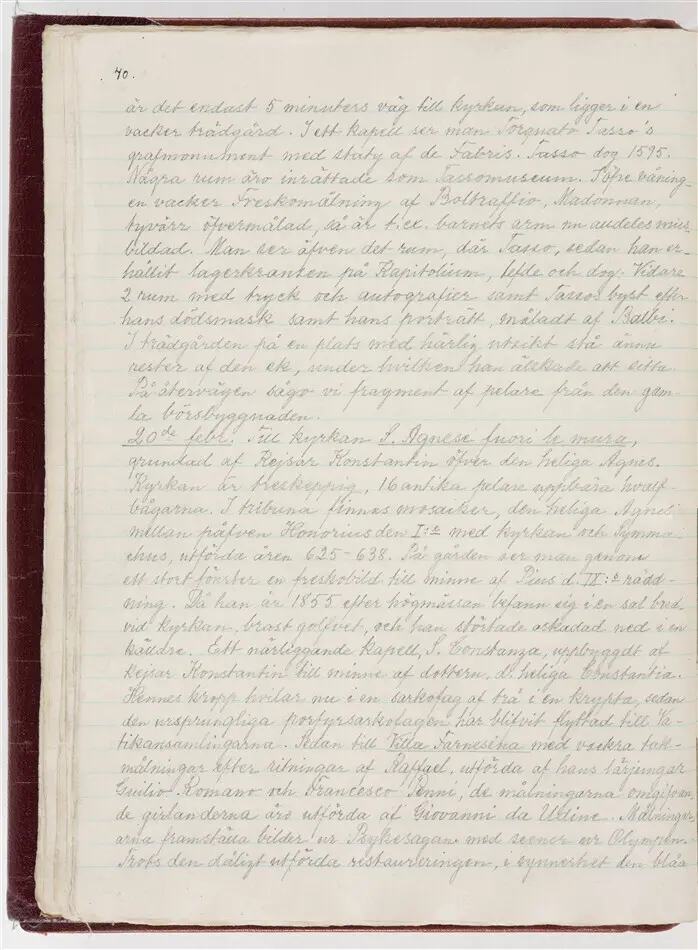 40.
är det endast 5 minuters väg till kyrkan, som ligger i en
vacker trädgård. I ett kapell ser man Torquato Tasso's
grafmonument med staty af de Fabris. Tasso dog 1595.
Några rum äro inrättade som Tassomuseum. I öfre våning-
en vacker Freskomålning af Boltraffio, Madonnan,
tyvärr öfvermålad, så är t. ex. barnets arm nu alldeles miss-
bildad. Man ser äfven det rum, där Tasso, sedan han er-
hållit lagerkransen på Kapitolium, lefde och dog. Vidare
2 rum med tryck och autografier samt Tassos byst efter
hans dödsmask samt hans porträtt, måladt af Balbi.
I trädgården på en plats med härlig utsikt stå ännu
rester af den ek, under hvilken han älskade att sitta.
På återvägen sågo vi fragment af pelare från den gam-
la börsbyggnaden.
20de febr. Till kyrkan S. Agnese fuori le mura,
grundad af Kejsar Konstantin öfver den heliga Agnes.
Kyrkan är treskeppig, 16 antika pelare uppbära hvalf-
bågarna. I tribuna finnas mosaiker, den heliga Agnes
mellan påfven Honorius den I:e med kyrkan och Symma-
chus, utförda åren 625-638. På gården ser man genom
ett stort fönster en freskobild till minne af Pius d. IX:e rädd-
ning. Då han år 1855 efter högmässan befann sig i en sal bred-
vid kyrkan, brast golfvet, och han störtade oskadad ned i en
källare. Ett närliggande kapell, S. Constanza, uppbyggdt af
kejsar Konstantin till minne af dottern, d. heliga Constantia.
Hennes kropp hvilar nu i en sarkofag af trä i en krypta, sedan
den ursprungliga porfyrsarkofagen har blifvit flyttad till Va-
tikansamlingarna. Sedan till Villa Farnesina med vackra tak-
målningar efter ritningar af Raffael, utförda af hans lärjungar
Giulio Romano och Francesco Penni, de målningarna omgifvan-
de girlanderna äro utförda af Giovanni da Udine. Målningar-
arna framställa bilder ur Psykesagan med scener ur Olympen.
Trots den dåligt utförda restaureringen, i synnerhet den blåa